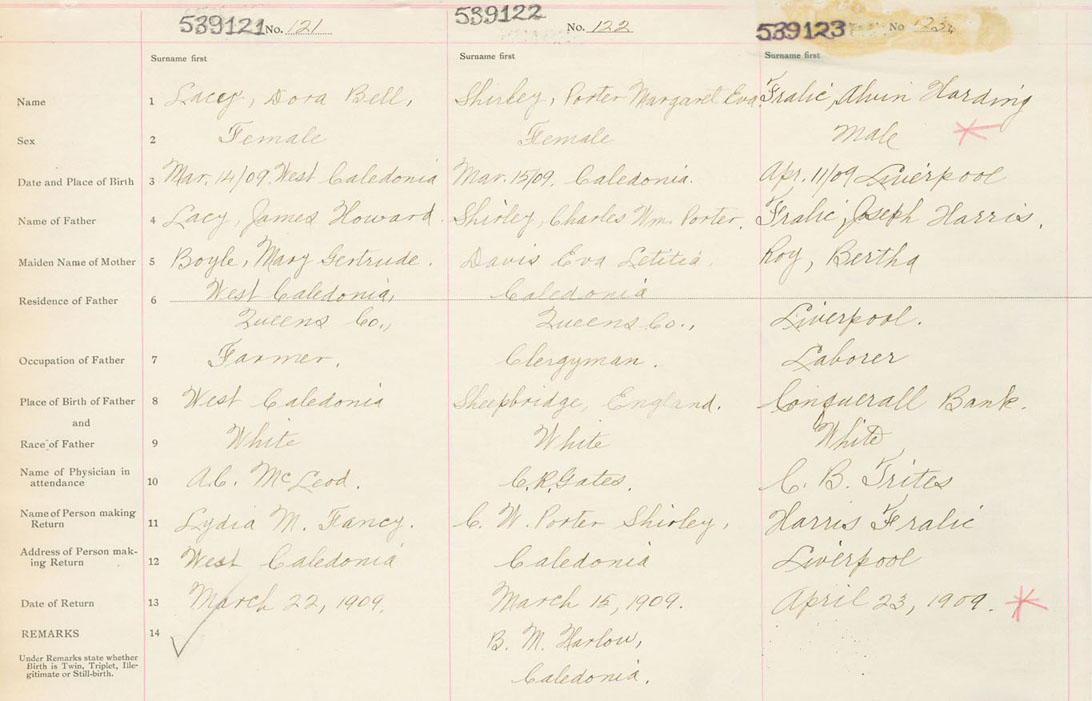 539121 No. 121 539122 No. 122 539123 No 123
Surname first Surname first Surname first
Name 1 Lacey, Dora Bell, Shirley, Porter Margaret Eva Fralic, Alvin Harding
Sex 2 Female Female Male
Date and Place of Birth 3 Mar. 14/09. West Caledonia Mar. 15/09. Caledonia. Apr. 11/09 Liverpool
Name of Father 4 Lacy, James Howard. Shirley, Charles Wm. Porter. Fralic, Joseph Harris.
Maiden Name of Mother 5 Boyle, Mary Gertrude. Davis Eva Letitia. Roy, Bertha
Residence of Father 6 West Caledonia, Caledonia
Queens Co., Queens Co., Liverpool.
Occupation of Father 7 Farmer. Clergyman. Laborer
Place of Birth of Father 8 West Caledonia Sheepbridge, England. Conquerall Bank.
and
Race of Father 9 White White White
Name of Physician in
attendance 10 A.C. McLeod. C.R. Gates. C. B. Trites
Name of Person making
Return 11 Lydia M. Fancy. C. W. Porter Shirley, Harris Fralic
Address of Person mak-
ing Return 12 West Caledonia Caledonia Liverpool
Date of Return 13 March 22, 1909. March 15, 1909. April 23, 1909.
REMARKS 14 B. M. Harlow,
Under Remarks state whether
Birth is Twin, Triplet, Ille-
gitimate or Still-birth. Caledonia.